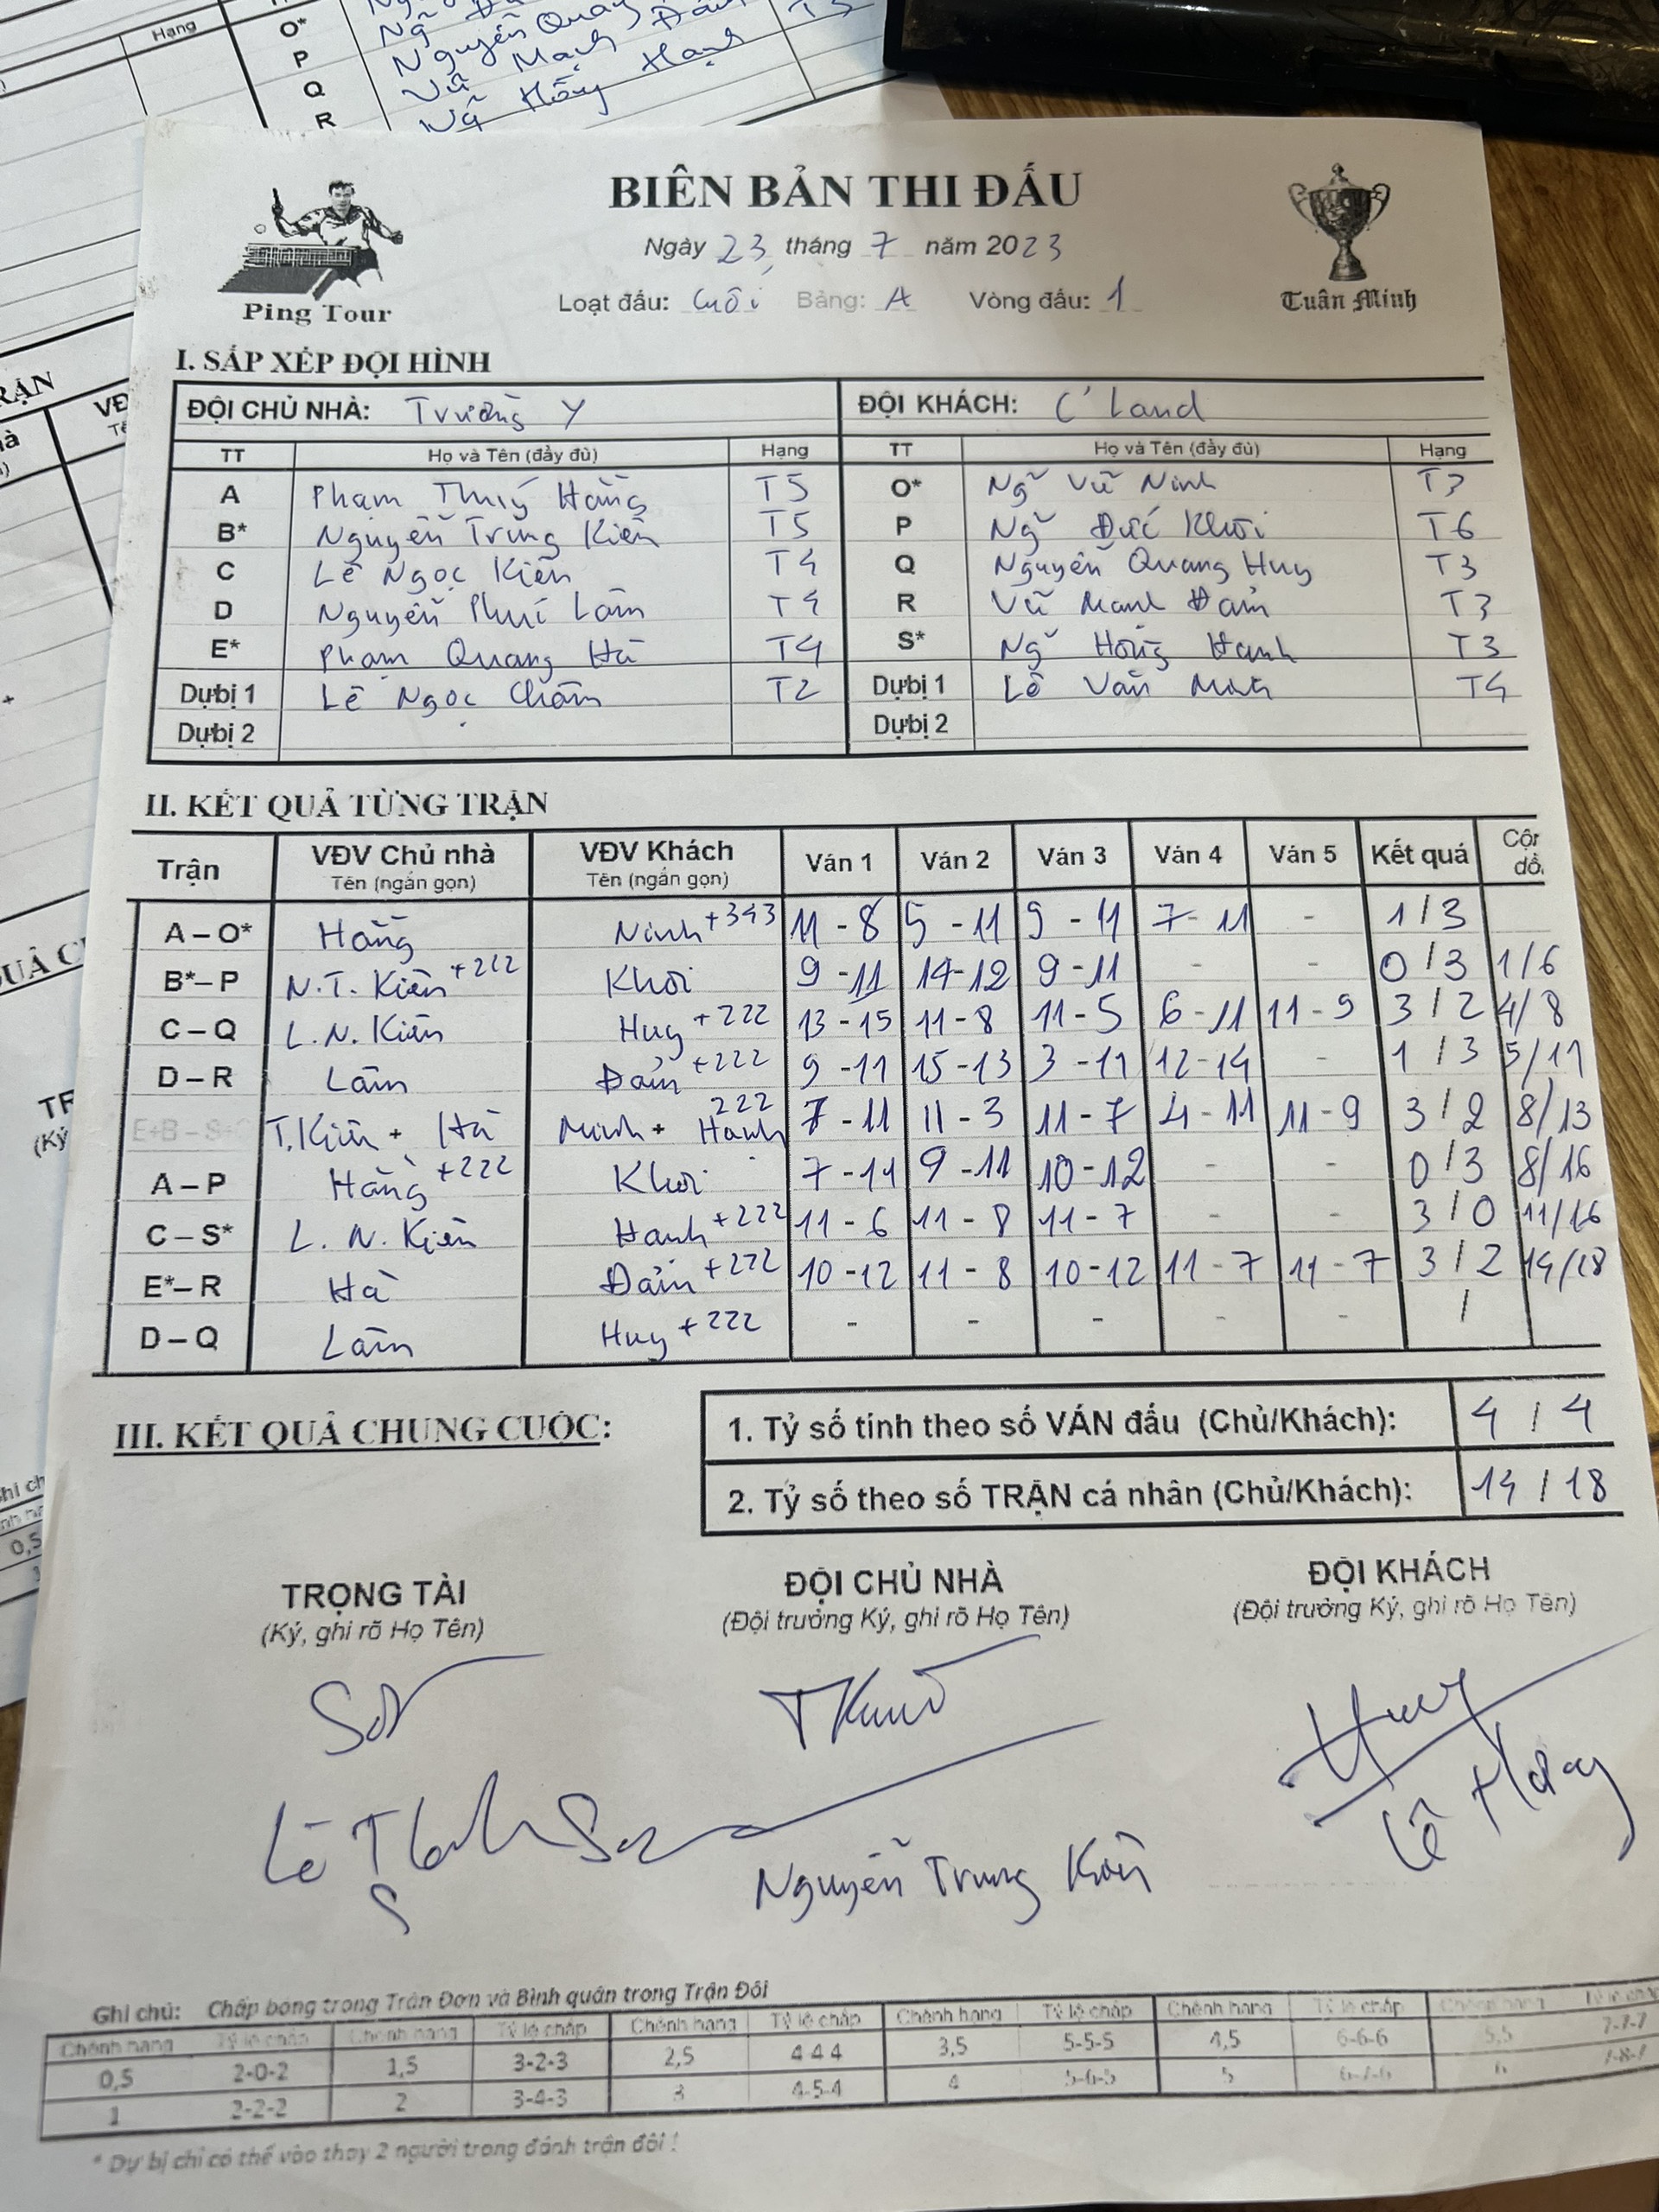 Hạng
O*
P
Q
R
Nguyễn Quang
Vũ Mạnh Đản
Ngô Hồng Hạnh
T3
BIÊN BẢN THI ĐẤU
Ngày 23 tháng 7 năm 2023
Loạt đấu: Cuối Bảng: A Vòng đấu: 1
Ping Tour
Tuân Minh
I. SẮP XẾP ĐỘI HÌNH
ĐỘI CHỦ NHÀ: Trường Y ĐỘI KHÁCH: C'Land
TT Họ và Tên (đầy đủ) Hạng TT Họ và Tên (đầy đủ) Hạng
A Phạm Thuý Hằng T5 O* Ngô Vũ Ninh T3
B* Nguyễn Trung Kiên T5 P Ngô Đức Khôi T6
C Lê Ngọc Kiên T4 Q Nguyễn Quang Huy T3
D Nguyễn Phú Lâm T4 R Vũ Mạnh Đản T3
E* Phạm Quang Hà T4 S* Ngô Hồng Hạnh T3
Dự bị 1 Lê Ngọc Châm T2 Dự bị 1 Lê Văn Minh T4
Dự bị 2 Dự bị 2
II. KẾT QUẢ TỪNG TRẬN
Trận VĐV Chủ nhà VĐV Khách Ván 1 Ván 2 Ván 3 Ván 4 Ván 5 Kết quả
Tên (ngắn gọn) Tên (ngắn gọn)
A – O* Hằng Ninh +343 11 - 8 5 - 11 9 - 11 7 - 11 - 1 / 3
B* – P N.T. Kiên +212 Khôi 9 - 11 14 - 12 9 - 11 - - 0 / 3 1/6
C – Q L.N. Kiên Huy +222 13 - 15 11 - 8 11 - 5 6 - 11 11 - 9 3 / 2 4/8
D – R Lâm Đản +222 9 - 11 15 - 13 3 - 11 12 - 14 - 1 / 3 5/11
T.Kiên + Hà Minh + Hạnh 222 7 - 11 11 - 3 11 - 7 4 - 11 11 - 9 3 / 2 8/13
A – P Hằng +222 Khôi 7 - 11 9 - 11 10 - 12 - - 0 / 3 8/16
C – S* L.N. Kiên Hạnh +222 11 - 6 11 - 8 11 - 7 - - 3 / 0 11/16
E* – R Hà Đản +222 10 - 12 11 - 8 10 - 12 11 - 7 11 - 7 3 / 2 14/18
D – Q Lâm Huy +222 - - - - - /
III. KẾT QUẢ CHUNG CUỘC:
1. Tỷ số tính theo số VÁN đấu (Chủ/Khách): 4 / 4
2. Tỷ số theo số TRẬN cá nhân (Chủ/Khách): 14 / 18
TRỌNG TÀI ĐỘI CHỦ NHÀ ĐỘI KHÁCH
(Ký, ghi rõ Họ Tên) (Đội trưởng Ký, ghi rõ Họ Tên) (Đội trưởng Ký, ghi rõ Họ Tên)
Huy
Nguyễn Trung Kiên
Ghi chú: Chấp bóng trong Trận Đơn và Bình quân trong Trận Đôi
Chênh hạng Tỷ lệ chấp Chênh hạng Tỷ lệ chấp Chênh hạng Tỷ lệ chấp Chênh hạng Tỷ lệ chấp Chênh hạng Tỷ lệ chấp
0,5 2-0-2 1,5 3-2-3 2,5 4-4-4 3,5 5-5-5 4,5 6-6-6 5,5 7-7-7
1 2-2-2 2 3-4-3 3 4-5-4 4 5-6-5 5 6-7-6 6
* Dự bị chỉ có thể vào thay 2 người trong đánh trận đôi !